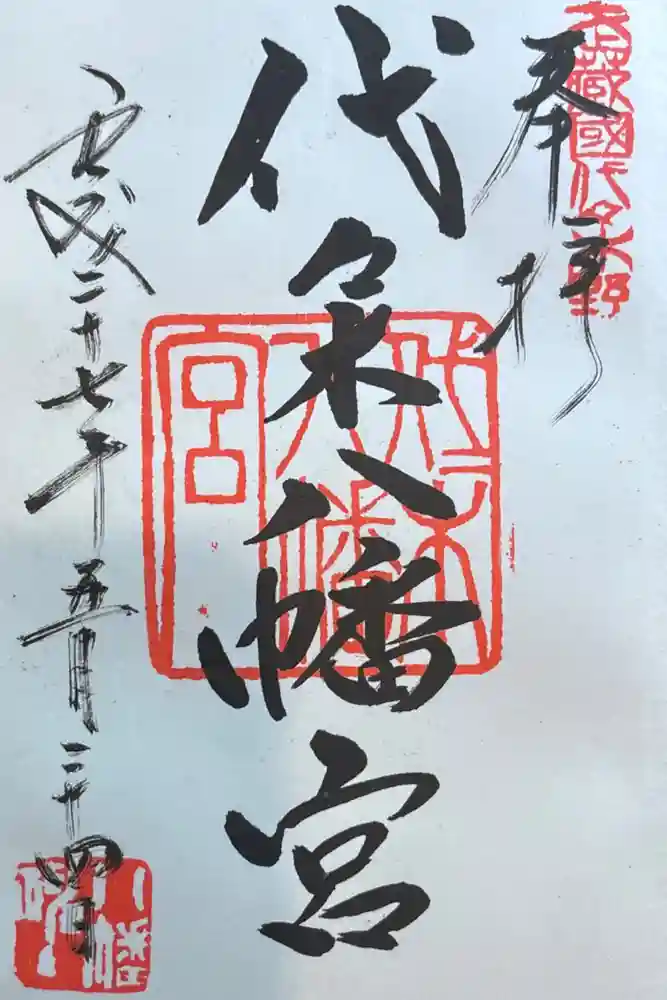 武藏國代々木野
奉拝
代々木八幡宮
代々木
八幡
宮
平成二十七年五月二十四日